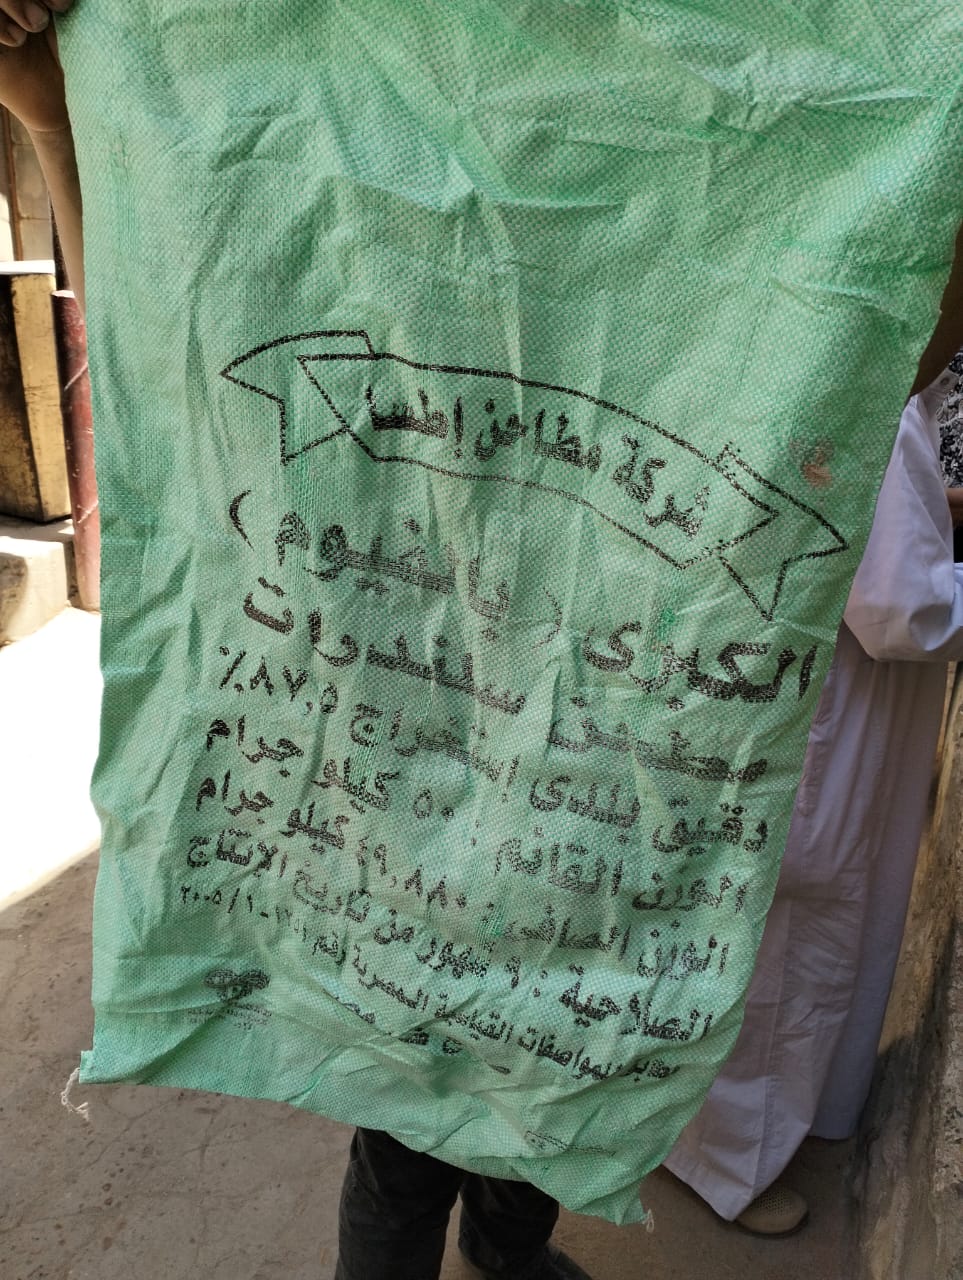 شركة مطاحن إطسا
الكبرى ( بالفيوم )
مطحن سلندرات
دقيق بلدى إستخراج ٨٧,٥٪
الوزن القائم : ٥٠ كيلو جرام
الوزن الصافى : ٤٩,٨٨٠ كيلو جرام
الصلاحية : ٩ شهور من تاريخ الإنتاج
للمواصفات القياسية المصرية رقم ٢٠٠٥/١-